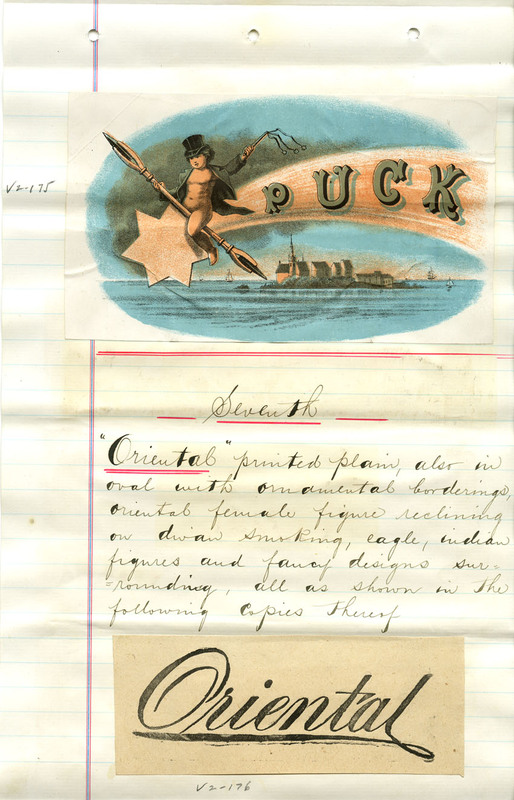 PUCK
V2-175
Seventh
"Oriental" printed plain, also in
oval with ornamental borderings,
oriental female figure reclining
on divan smoking, eagle, indian
figures and fancy designs sur=
=rounding, all as shown in the
following copies thereof
Oriental
V2-176